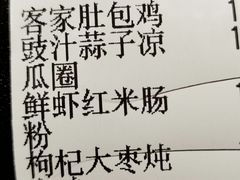 客家肚包鸡
豉汁蒜子凉
瓜圈
鲜虾红米肠
粉
枸杞大枣炖